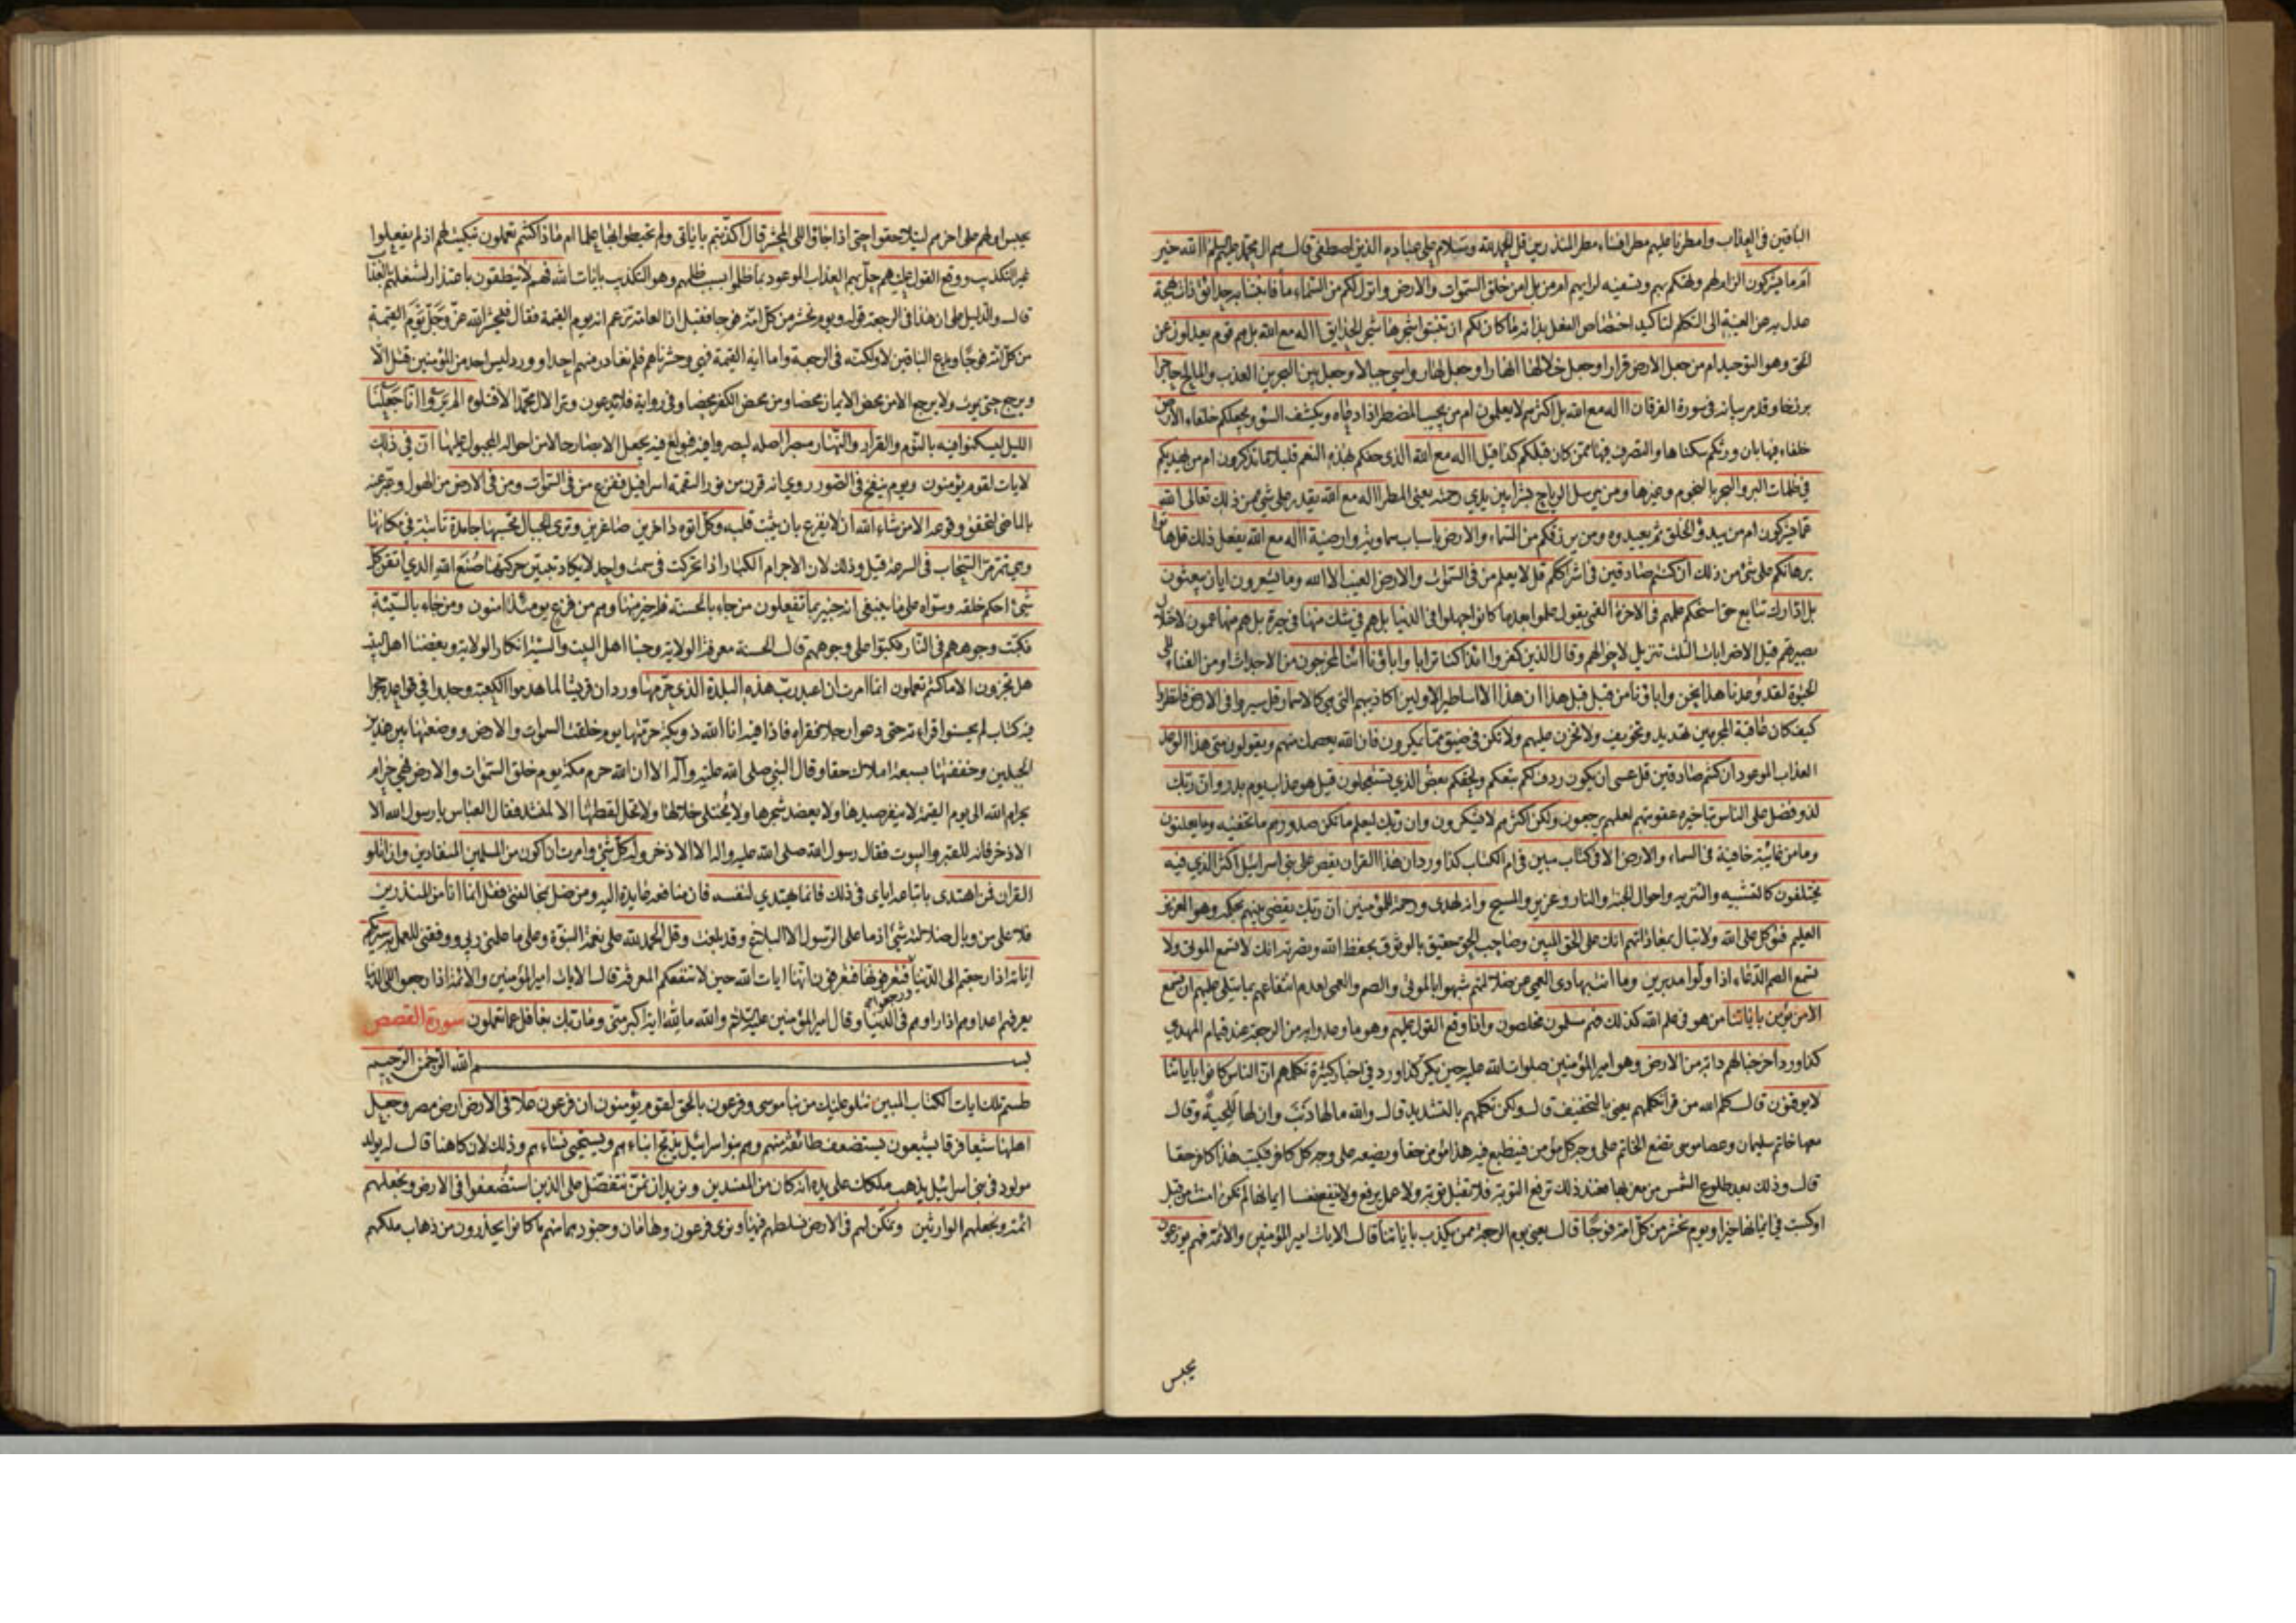 الباقين في العذاب وامطرنا عليهم مطرا فساء مطر المنذرين قل الحمد لله وسلام على عباده الذين اصطفى قال هم ال محمد عليهم السلم االله خير
اما يشركون الزام لهم وتهكم بهم وتسفيه لرايهم امن بل امن خلق السموات والارض وانزل لكم من السماء ماء فانبتنا به حدائق ذات بهجة
عدل به من الغيبة الى التكلم لتاكيد اختصاص الفعل بذاته ما كان لكم ان تنبتوا شجرها شجر الحدايق االه مع الله بل هم قوم يعدلون عن
الحق وهو التوحيد امن جعل الارض قرارا وجعل خلالها انهارا وجعل لها رواسي جبالا وجعل بين البحرين العذب والمالح حاجزا
برزخا وقد مر بيانه في سورة الفرقان االه مع الله بل اكثرهم لا يعلمون امن يجيب المضطر اذا دعاه ويكشف السوء ويجعلكم خلفاء الارض
خلفاء فيها بان ورثكم سكناها والتصرف فيها ممن كان قبلكم كذا قيل االه مع الله الذي حفكم بهذه النعم قليلا ما تذكرون امن يهديكم
في ظلمات البر والبحر بالنجوم وغيرها ومن يرسل الرياح بشرا بين يدي رحمته يعني المطر االه مع الله يقدر على شيء من ذلك تعالى الله
عما يشركون ام من يبدؤ الخلق ثم يعيده ومن يرزقكم من السماء والارض باسباب سماوية وارضية االه مع الله يفعل ذلك قل هاتوا
برهانكم على شيء من ذلك ان كنتم صادقين في اشراككم قل لا يعلم من في السموات والارض الغيب الا الله وما يشعرون ايان يبعثون
بل ادارك تتابع حتى استحكم علمهم في الاخرة القمي يقول علموا بعد ما كانوا جهلوا في الدنيا بل هم في شك منها في حيرة بل هم منها عمون لاختلال
بصيرتهم قيل الاضرابات الثلث تنزيل لاحوالهم وقال الذين كفروا ائذا كنا ترابا واباؤنا ائنا لمخرجون من الاجداث او من الفناء الى
الحيوة لقد وعدنا هذا نحن واباؤنا من قبل قبل هذا ان هذا الا اساطير الاولين اكاذيبهم التي هي كالاسمار قل سيروا في الارض فانظروا
كيف كان عاقبة المجرمين تهديد وتخويف ولا تحزن عليهم ولا تكن في ضيق مما يمكرون فان الله يعصمك منهم ويقولون متى هذا الوعد
العذاب الموعود ان كنتم صادقين قل عسى ان يكون ردف لكم تبعكم ولحقكم بعض الذي تستعجلون قيل هو عذاب يوم بدر وان ربك
لذو فضل على الناس بتاخيره عقوبتهم لعلهم يرجعون ولكن اكثرهم لا يشكرون وان ربك ليعلم ما تكن صدورهم ما تخفيه وما يعلنون
وما من غائبة خافية في السماء والارض الا في كتاب مبين في ام الكتاب كذا ورد ان هذا القران يقص على بني اسرائيل اكثر الذي فيه
يختلفون كالتشبيه والتنزيه واحوال الجنة والنار وعزير والمسيح وانه لهدى ورحمة للمؤمنين ان ربك يقضي بينهم بحكمه وهو العزيز
العليم فتوكل على الله ولا تبال بمعاداتهم انك على الحق المبين وصاحب الحق حقيق بالوثوق بحفظ الله ونصرته انك لا تسمع الموتى ولا
تسمع الصم الدعاء اذا ولوا مدبرين وما انت بهادي العمي عن ضلالتهم شبهوا بالموتى والصم والعمي لعدم انتفاعهم بما يتلى عليهم ان تسمع
الا من يؤمن باياتنا من هو في علم الله كذلك فهم مسلمون مخلصون واذا وقع القول عليهم وهو ما وعدوا به من الرجعة عند قيام المهدي
كذا ورد اخرجنا لهم دابة من الارض وهو امير المؤمنين صلوات الله عليه حين يكر كذا ورد في اخبار كثيرة تكلمهم ان الناس كانوا باياتنا
لا يوقنون قال كلم الله من قرا تكلمهم يعني بالتخفيف قال ولكن تكلمهم بالتشديد قال والله ما لها ذنب وان لها للحية وقال
معها خاتم سليمان وعصا موسى تضع الخاتم على وجه كل مؤمن فيطبع فيه هذا مؤمن حقا ويضعه على وجه كل كافر فيكتب هذا كافر حقا
قال وذلك بعد طلوع الشمس من مغربها فعند ذلك ترفع التوبة فلا تقبل توبة ولا عمل يرفع ولا ينفع نفسا ايمانها لم تكن امنت من قبل
او كسبت في ايمانها خيرا ويوم نحشر من كل امة فوجا قال يعني يوم الرجعة ممن يكذب باياتنا قال الايات امير المؤمنين والائمة فهم يوزعون
يحبس
يحبس اولهم على اخرهم ليتلاحقوا حتى اذا جاؤا الى المحشر قال اكذبتم باياتي ولم تحيطوا بها علما ام ماذا كنتم تعملون تبكيت لهم اذ لم يفعلوا
غير التكذيب ووقع القول عليهم حل بهم العذاب الموعود بما ظلموا بسبب ظلمهم وهو التكذيب بايات الله فهم لا ينطقون باعتذار لشغلهم بالعذاب
قال والدليل على ان هذا في الرجعة قوله ويوم نحشر من كل امة فوجا فقيل ان العامة تزعم انه يوم القيمة فقال فيحشر الله عز وجل يوم القيمة
من كل امة فوجا ويدع الباقين لا ولكنه في الرجعة واما اية القيمة فهي وحشرناهم فلم نغادر منهم احدا وورد ليس احد من المؤمنين قتل الا
ويرجع حتى يموت ولا يرجع الا من محض الايمان محضا ومن محض الكفر محضا وفي رواية فلا تدعون وترا لال محمد الا قتلوه الم يروا انا جعلنا
الليل ليسكنوا فيه بالنوم والقرار والنهار مبصرا اصله ليبصروا فيه فبولغ فيه بجعل الابصار حالا من احواله المجبول عليها ان في ذلك
لايات لقوم يؤمنون ويوم ينفخ في الصور روي انه قرن من نور التقمه اسرافيل ففزع من في السموات ومن في الارض من الهول وعبر عنه
بالماضي لتحقق وقوعه الا من شاء الله ان لا يفزع بان يثبت قلبه وكل اتوه داخرين صاغرين وترى الجبال تحسبها جامدة ثابتة في مكانها
وهي تمر مر السحاب في السرعة قيل وذلك لان الاجرام الكبار اذا تحركت في سمت واحد لا يكاد تتبين حركتها صنع الله الذي اتقن كل
شيء احكم خلقه وسواه على ما ينبغي انه خبير بما تفعلون من جاء بالحسنة فله خير منها وهم من فزع يومئذ امنون ومن جاء بالسيئة
فكبت وجوههم في النار فكبوا على وجوههم قال الحسنة معرفة الولاية وحبنا اهل البيت والسيئة انكار الولاية وبغضنا اهل البيت
هل تجزون الا ما كنتم تعملون انما امرت ان اعبد رب هذه البلدة الذي حرمها ورد ان قريشا لما هدموا الكعبة وجدوا في قواعده حجرا
فيه كتاب لم يحسنوا قراءته حتى دعوا رجلا فقراه فاذا فيه انا الله ذو بكة حرمتها يوم خلقت السموات والارض ووضعتها بين هذين
الجبلين وحففتها بسبعة املاك حفا وقال النبي صلى الله عليه وآله الا ان الله حرم مكة يوم خلق السموات والارض فهي حرام
بحرام الله الى يوم القيمة لا ينفر صيدها ولا يعضد شجرها ولا يختلى خلالها ولا تحل لقطتها الا لمنشد فقال العباس يا رسول الله الا
الاذخر فانه للقبر والبيوت فقال رسول الله صلى الله عليه واله الا الاذخر وله كل شيء وامرت ان اكون من المسلمين المنقادين وان اتلو
القران فمن اهتدى باتباعه اياي في ذلك فانما يهتدي لنفسه فان منافعه عايدة اليه ومن ضل بمخالفتي فقل انما انا من المنذرين
فلا علي من وبال ضلالته شيء اذ ما على الرسول الا البلاغ وقد بلغت وقل الحمد لله على نعمة النبوة وعلى ما علمني ربي ووفقني للعمل به سيريكم
اياته اذا رجعتم الى الدنيا فتعرفونها فتعرفون انها ايات الله حين لا تنفعكم المعرفة قال الايات امير المؤمنين والائمة اذا رجعوا الى الدنيا
يعرفهم اعداؤهم اذا راوهم في الدنيا وقال امير المؤمنين عليه السلام والله ما لله اية اكبر مني وما ربك بغافل عما تعملون سورة القصص
بسم الله الرحمن الرحيم
طسم تلك ايات الكتاب المبين نتلو عليك من نبا موسى وفرعون بالحق لقوم يؤمنون ان فرعون علا في الارض ارض مصر وجعل
اهلها شيعا فرقا يشيعون يستضعف طائفة منهم وهم بنو اسرائيل يذبح ابناءهم ويستحيي نساءهم وذلك لان كاهنا قال له يولد
مولود في بني اسرائيل يذهب ملكك على يده انه كان من المفسدين ونريد ان نمن نتفضل على الذين استضعفوا في الارض ونجعلهم
ائمة ونجعلهم الوارثين ونمكن لهم في الارض نسلطهم فيها ونري فرعون وهامان وجنودهما منهم ما كانوا يحذرون من ذهاب ملكهم